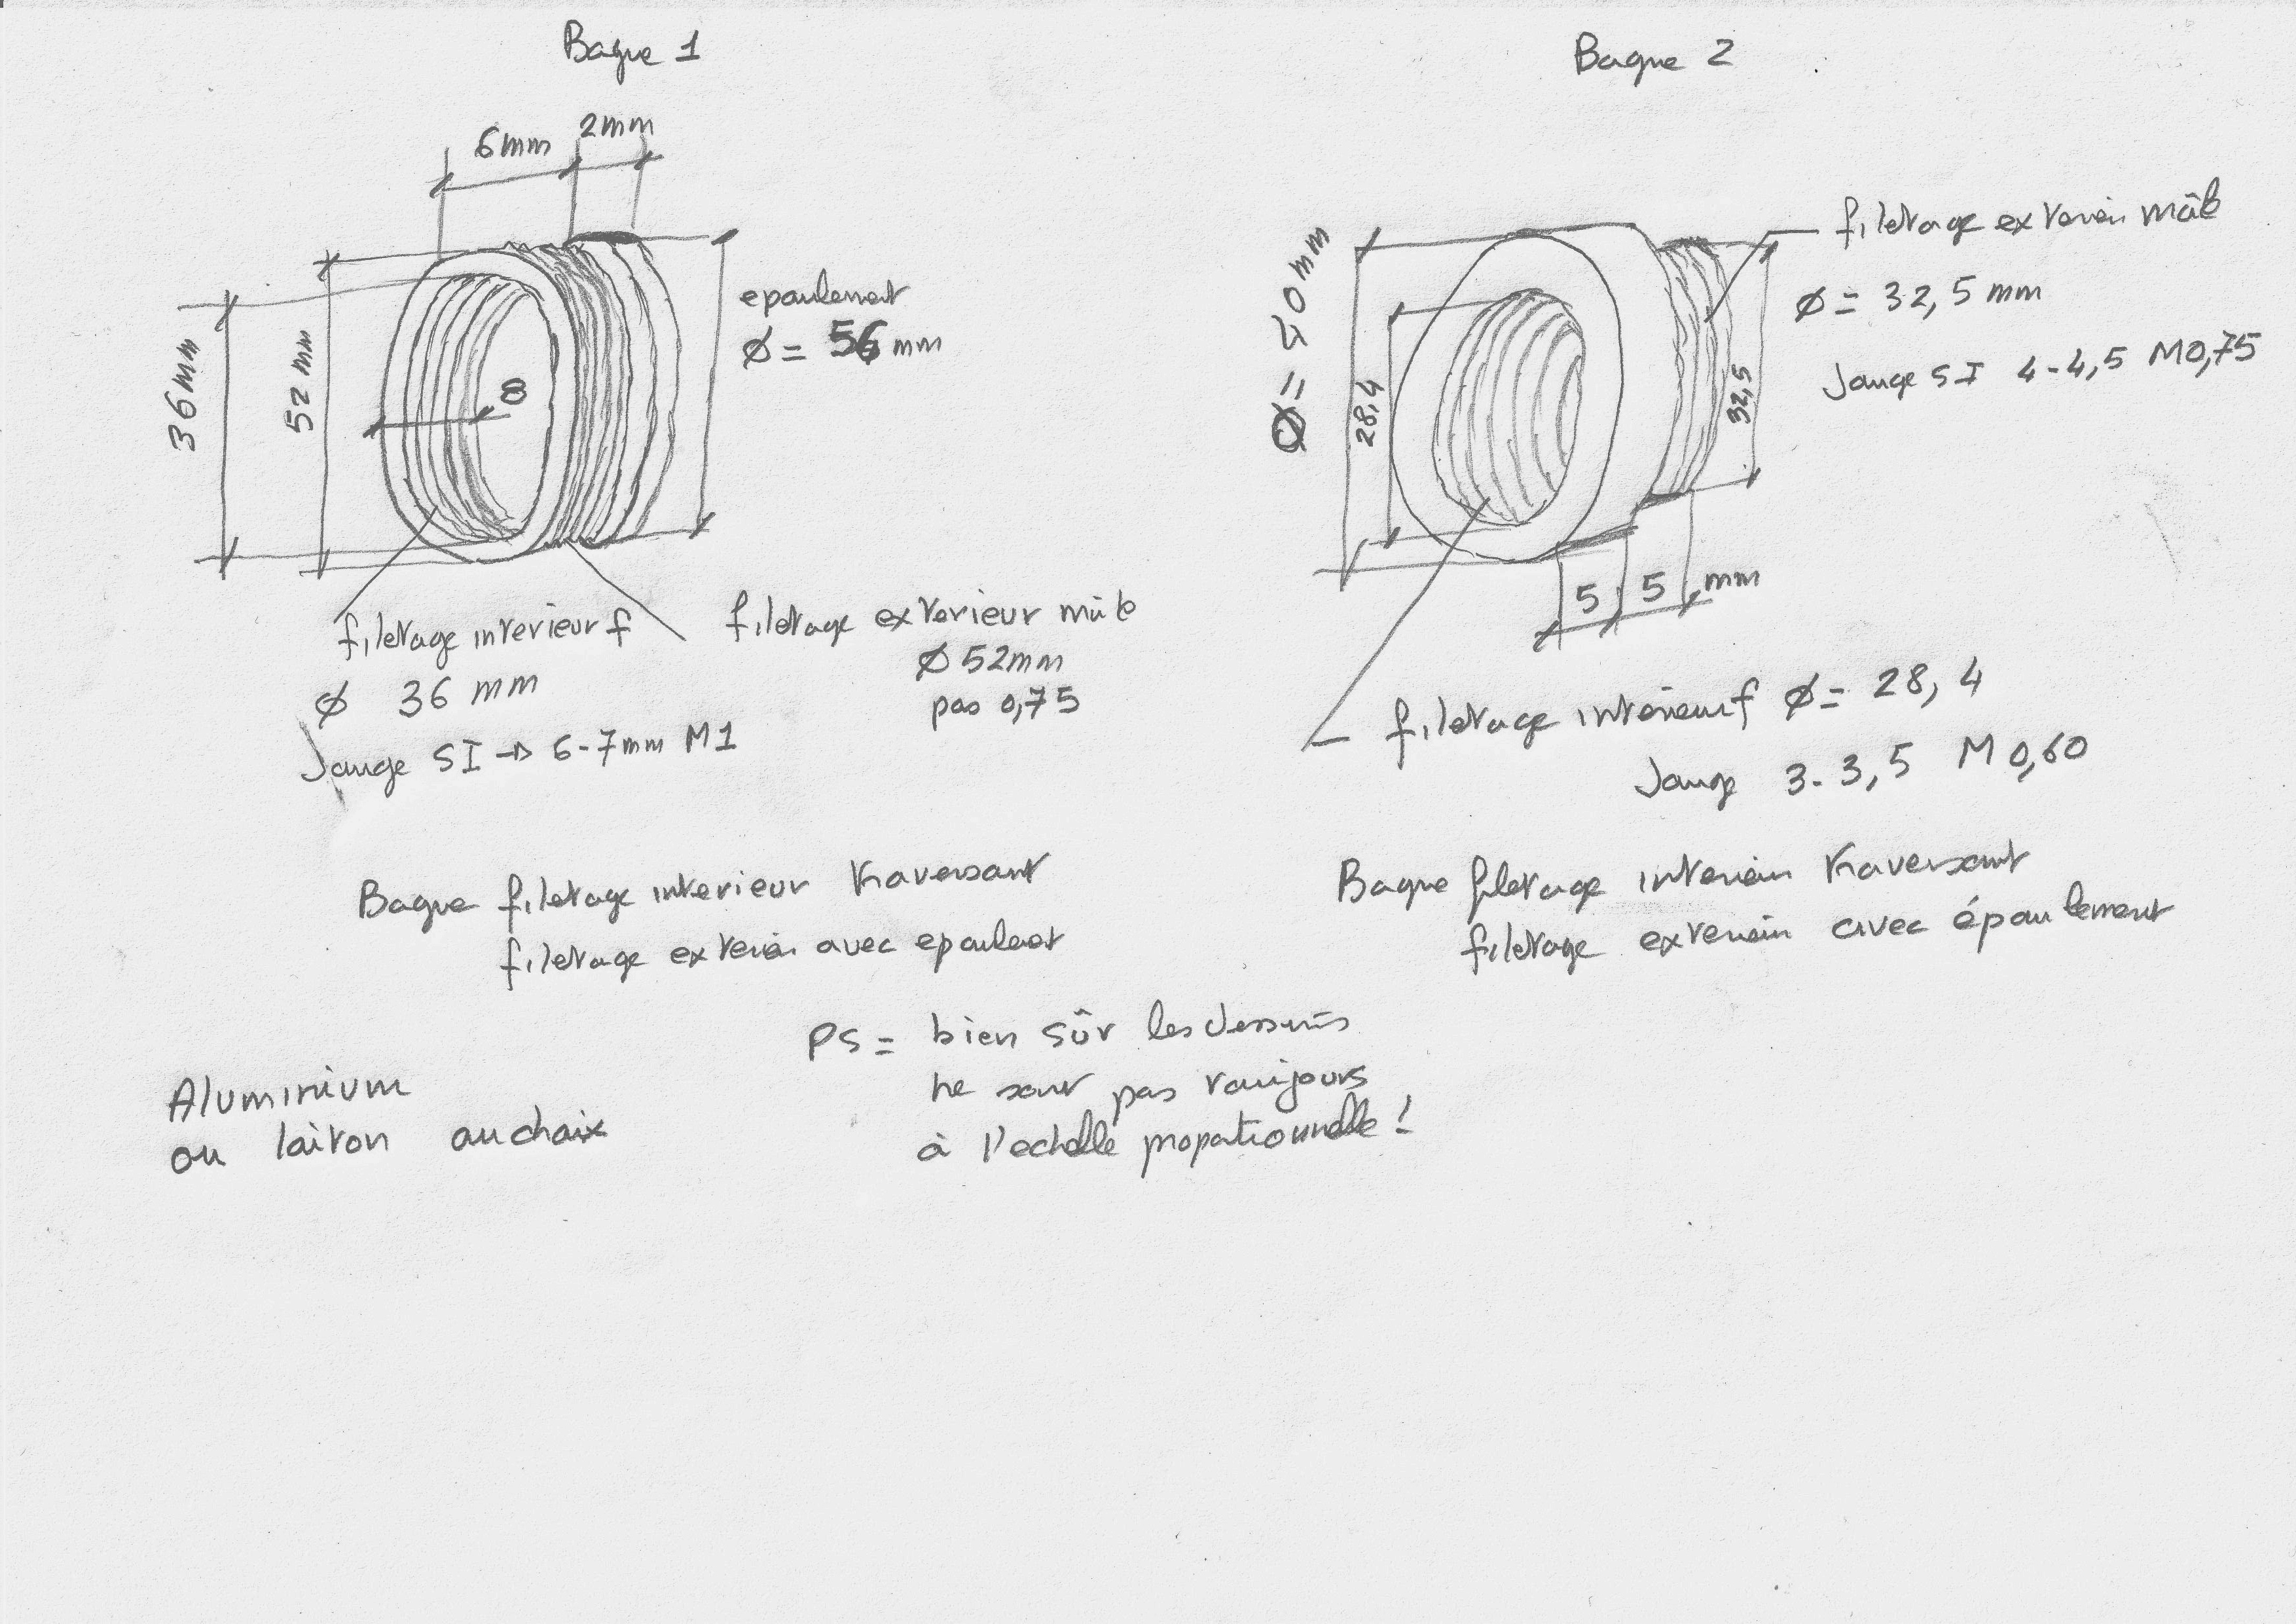 Bague 1
6mm 2mm
36mm
52 mm
8
epaulement
Ø = 56 mm
filetage interieur f
Ø 36 mm
Jauge SI → 6-7mm M1
filetage exterieur mâle
Ø 52mm
pas 0,75
Bague filetage interieur traversant
filetage exterieur avec epaulement
Bague 2
28,4
32,5
filetage exterieur mâle
Ø = 32,5 mm
Jauge SI 4-4,5 M0,75
5 5 mm
filetage intérieur f Ø = 28,4
Jauge 3-3,5 M 0,60
Bague filetage interieur traversant
filetage exterieur avec épaulement
PS = bien sûr les dessins
ne sont pas toujours
à l'echelle proportionnelle !
Aluminium
ou laiton au choix